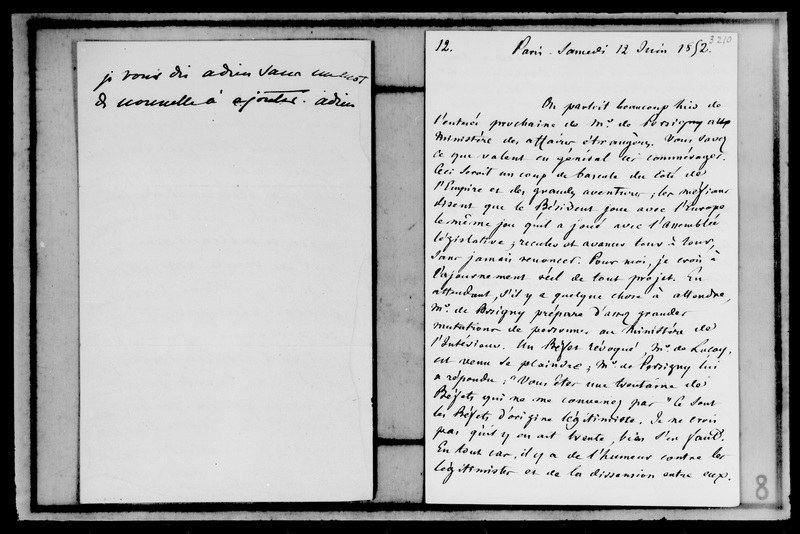 je vous dis adieu sans un mot
de nouvelle à ajouter. adieu
12. Paris - Samedi 12 Juin 1852.
3210
On parloit beaucoup hier de
l'entrée prochaine de Mr. de Persigny au
Ministère des affaires étrangères. Vous savez
ce que valent en général ces commérages.
Ceci seroit un coup de bascule du côté de
l'Empire et des grandes aventures ; les méfians
disent que le Président joue avec l'Europe
le même jeu qu'il a joué avec l'assemblée
législative ; reculer et avancer tour à tour,
sans jamais renoncer. Pour moi, je crois à
l'ajournement réel de tout projet. En
attendant, s'il y a quelque chose à attendre,
Mr. de Persigny prépare d'assez grandes
mutations de personnes au Ministère de
l'Intérieur. Un Préfet révoqué, Mr. de
est venu se plaindre ; Mr. de Persigny lui
a répondu : "Vous êtes une trentaine de
Préfets qui ne me convenez pas" Ce sont
les Préfets d'origine légitimiste. Je ne crois
pas qu'il y en ait trente, bien s'en faut.
En tout cas, il y a de l'humeur contre les
légitimistes et de la dissension entre eux.
8